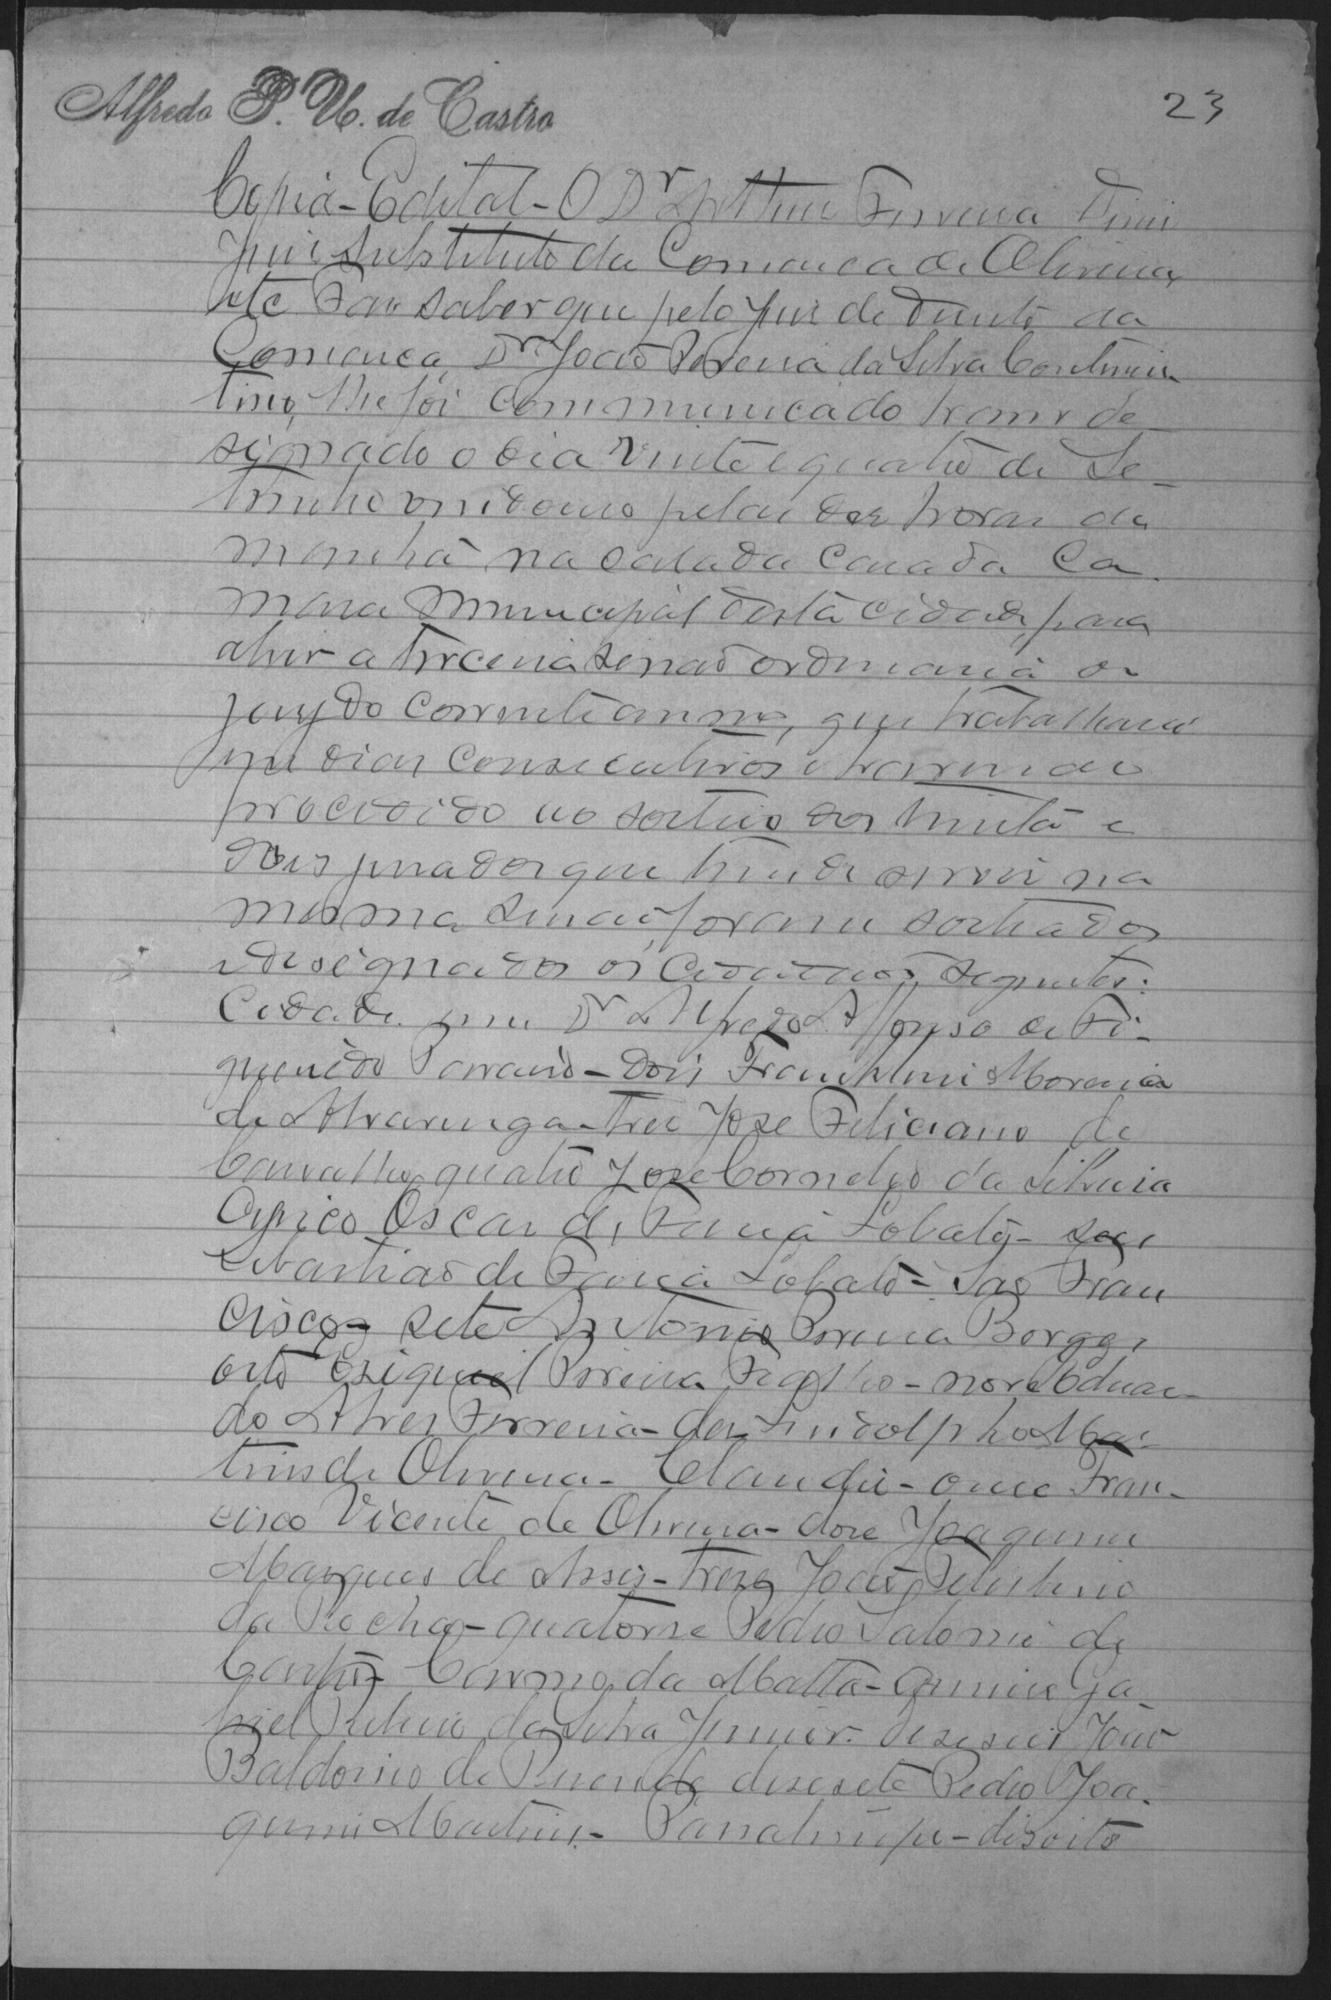 Alfredo P. U. de Castro
23
Copia - Edital - O Dr Arthur Ferreira Diniz
Juiz substituto da Comarca de Oliveira,
etc Faz saber que pelo Juiz de Direito da
Comarca, Dr João Pereira da Silva Continen
tino, lhe foi communicado haver de
signado o dia vinte e quatro de Se-
tembro vindouro pelas dez horas da
manhã na sala da casa da Ca
mara Municipal desta cidade, para
abrir a terceira sessão ordinaria do
jury do corrente anno, que trabalhará
em dias consecutivos e havendo
procedido ao sorteio dos trinta e
dois jurados que teem de servir na
mesma sessão, foram sorteados
e designados os cidadãos seguintes:
Cidade. um Dr Alfredo Affonso de Fi-
gueiredo Parraiso - dois Francklim Moreira
de Alvarenga - tres Jose Feliciano de
Carvalho, quatro Jose Cornelio da Silveira
cinco Oscar de Faria Lobato - seis
Sebastião de Faria Lobato - São Fran
cisco - sete Antonio Pereira Borges
oito Esiquiel Pereira Fialho - nove Eduar-
do Alves Ferreira - dez Lindolpho Mar-
tins de Oliveira - Claudio - onze Fran-
cisco Vicente de Oliveira - doze Joaquim
Marques de Assis - treze João
da Rocha - quatorze Pedro Salomé de
Castro - Carmo da Matta - quinze Ga-
briel da Silva Junior - deseseis João
Baldoino de Resende, desesete Pedro Joa-
quim Martins - - desoito